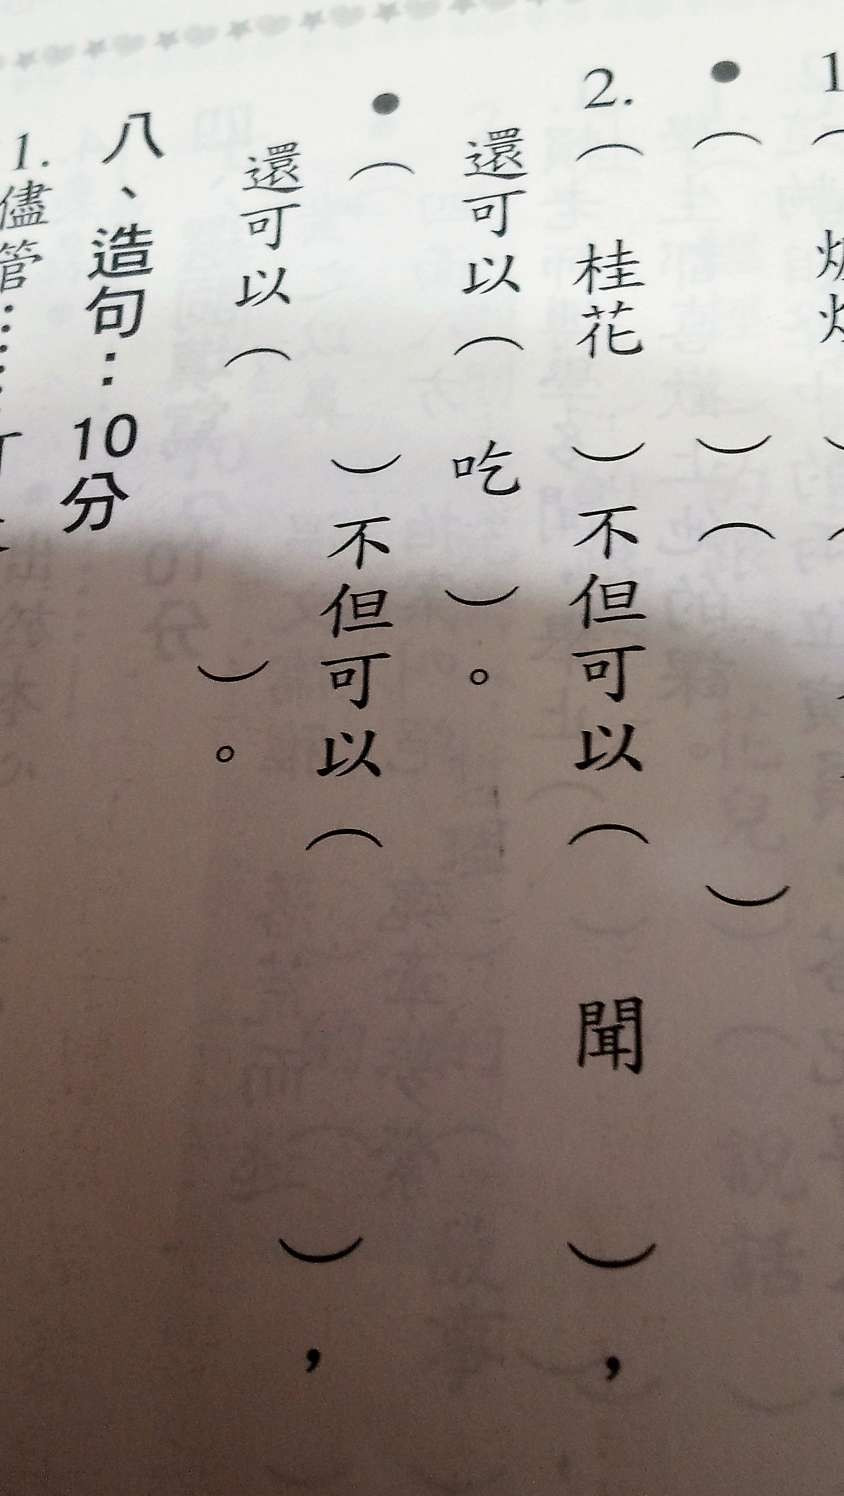 1.（
●（　　）（　　）
2.（桂花）不但可以（聞），
還可以（吃）。
●（　　）不但可以（　　），
還可以（　　）。
八、造句：10分
1.儘管……